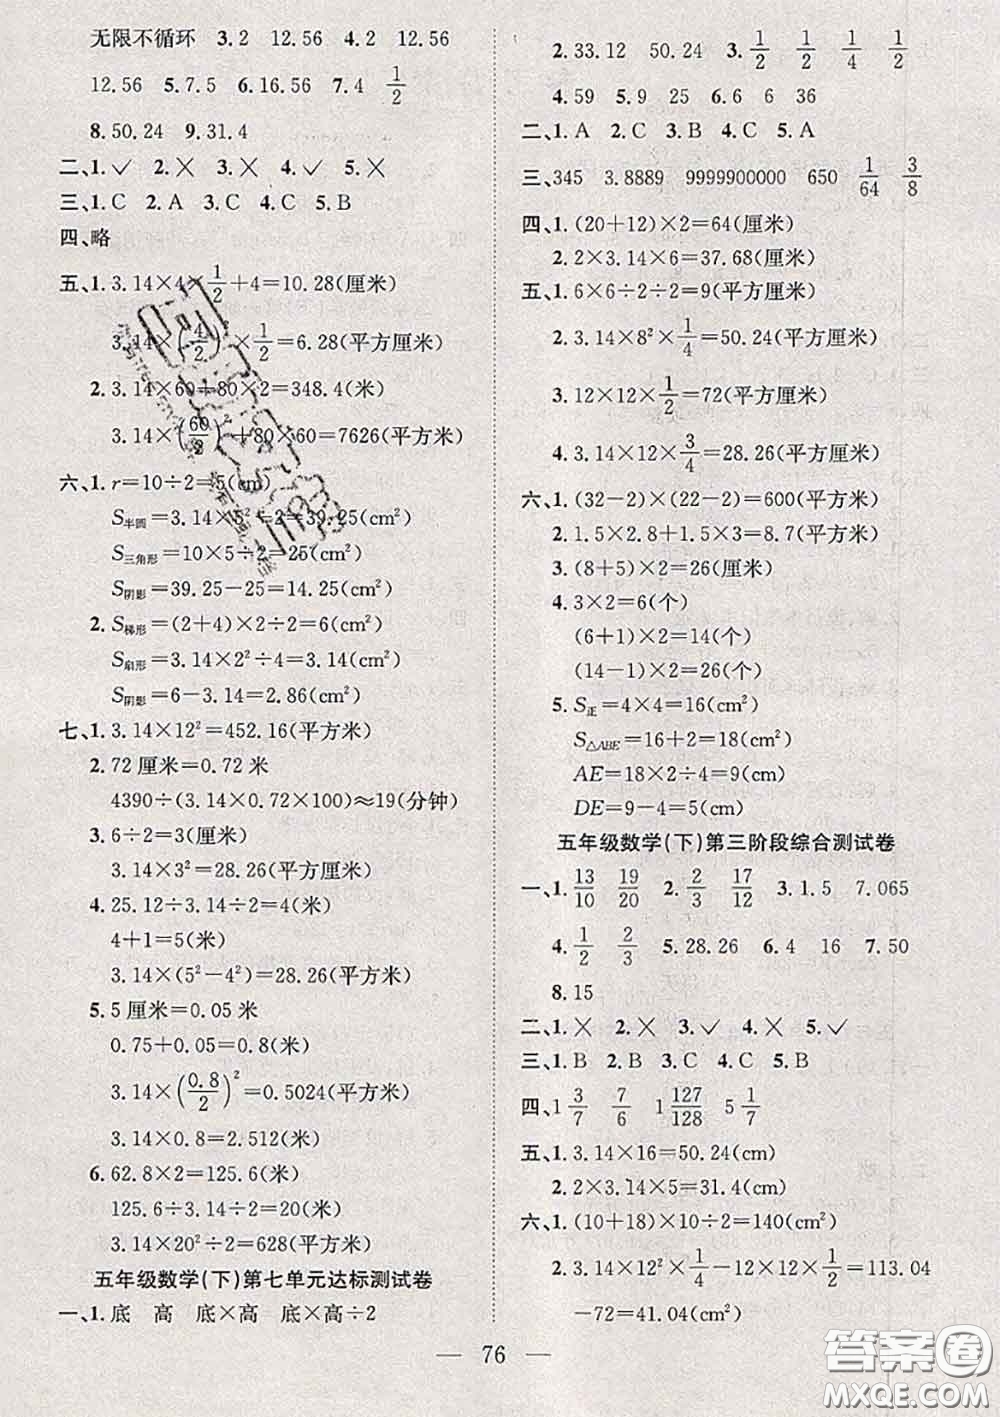 无限不循环 3.2 12.56 4.2 12.56
12.56 5.7.5 6.16.56 7.4 1/2
8.50.24 9.31.4
二、1.✓ 2.× 3.× 4.✓ 5.×
三、1.C 2.A 3.C 4.C 5.B
四、略
五、1.3.14×4×1/2+4=10.28(厘米)
3.14×(4/2)²×1/2=6.28(平方厘米)
2.3.14×60+80×2=348.4(米)
3.14×(60/2)²+80×60=7626(平方米)
六、1.r=10÷2=5(cm)
S半圆=3.14×5²÷2=39.25(cm²)
S三角形=10×5÷2=25(cm²)
S阴影=39.25-25=14.25(cm²)
2.S梯形=(2+4)×2÷2=6(cm²)
S扇形=3.14×2²÷4=3.14(cm²)
S阴影=6-3.14=2.86(cm²)
七、1.3.14×12²=452.16(平方米)
2.72厘米=0.72米
4390÷(3.14×0.72×100)≈19(分钟)
3.6÷2=3(厘米)
3.14×3²=28.26(平方厘米)
4.25.12÷3.14÷2=4(米)
4+1=5(米)
3.14×(5²-4²)=28.26(平方米)
5.5厘米=0.05米
0.75+0.05=0.8(米)
3.14×(0.8/2)²=0.5024(平方米)
3.14×0.8=2.512(米)
6.62.8×2=125.6(米)
125.6÷3.14÷2=20(米)
3.14×20²÷2=628(平方米)
五年级数学(下)第七单元达标测试卷
一、1.底 高 底×高 底×高÷2
2.33.12 50.24 3.1/2 1/2 1/4 1/2
4.59 5.9 25 6.6 6 36
二、1.A 2.C 3.B 4.C 5.A
三、345 3.8889 9999900000 650 1/64 3/8
四、1.(20+12)×2=64(厘米)
2.2×3.14×6=37.68(厘米)
五、1.6×6÷2÷2=9(平方厘米)
2.3.14×8²×1/4=50.24(平方米)
3.12×12×1/2=72(平方厘米)
4.3.14×12×3/4=28.26(平方米)
六、1.(32-2)×(22-2)=600(平方米)
2.1.5×2.8+1.5×3=8.7(平方米)
3.(8+5)×2=26(厘米)
4.3×2=6(个)
(6+1)×2=14(个)
(14-1)×2=26(个)
5.S正=4×4=16(cm²)
S△ABE=16+2=18(cm²)
AE=18×2÷4=9(cm)
DE=9-4=5(cm)
五年级数学(下)第三阶段综合测试卷
一、1.13/10 19/20 2.2/3 17/12 3.1.5 7.065
4.1/2 2/3 5.28.26 6.4 16 7.50
8.15
二、1.× 2.× 3.✓ 4.× 5.✓
三、1.B 2.B 3.C 4.C 5.B
四、1 3/7 7/6 1 127/128 5 1/7
五、1.3.14×16=50.24(cm)
2.2×3.14×5=31.4(cm)
六、1.(10+18)×10÷2=140(cm²)
2.3.14×12×12×1/4-12×12×1/2=113.04
-72=41.04(cm²)
76
答案圈
MXQE.COM